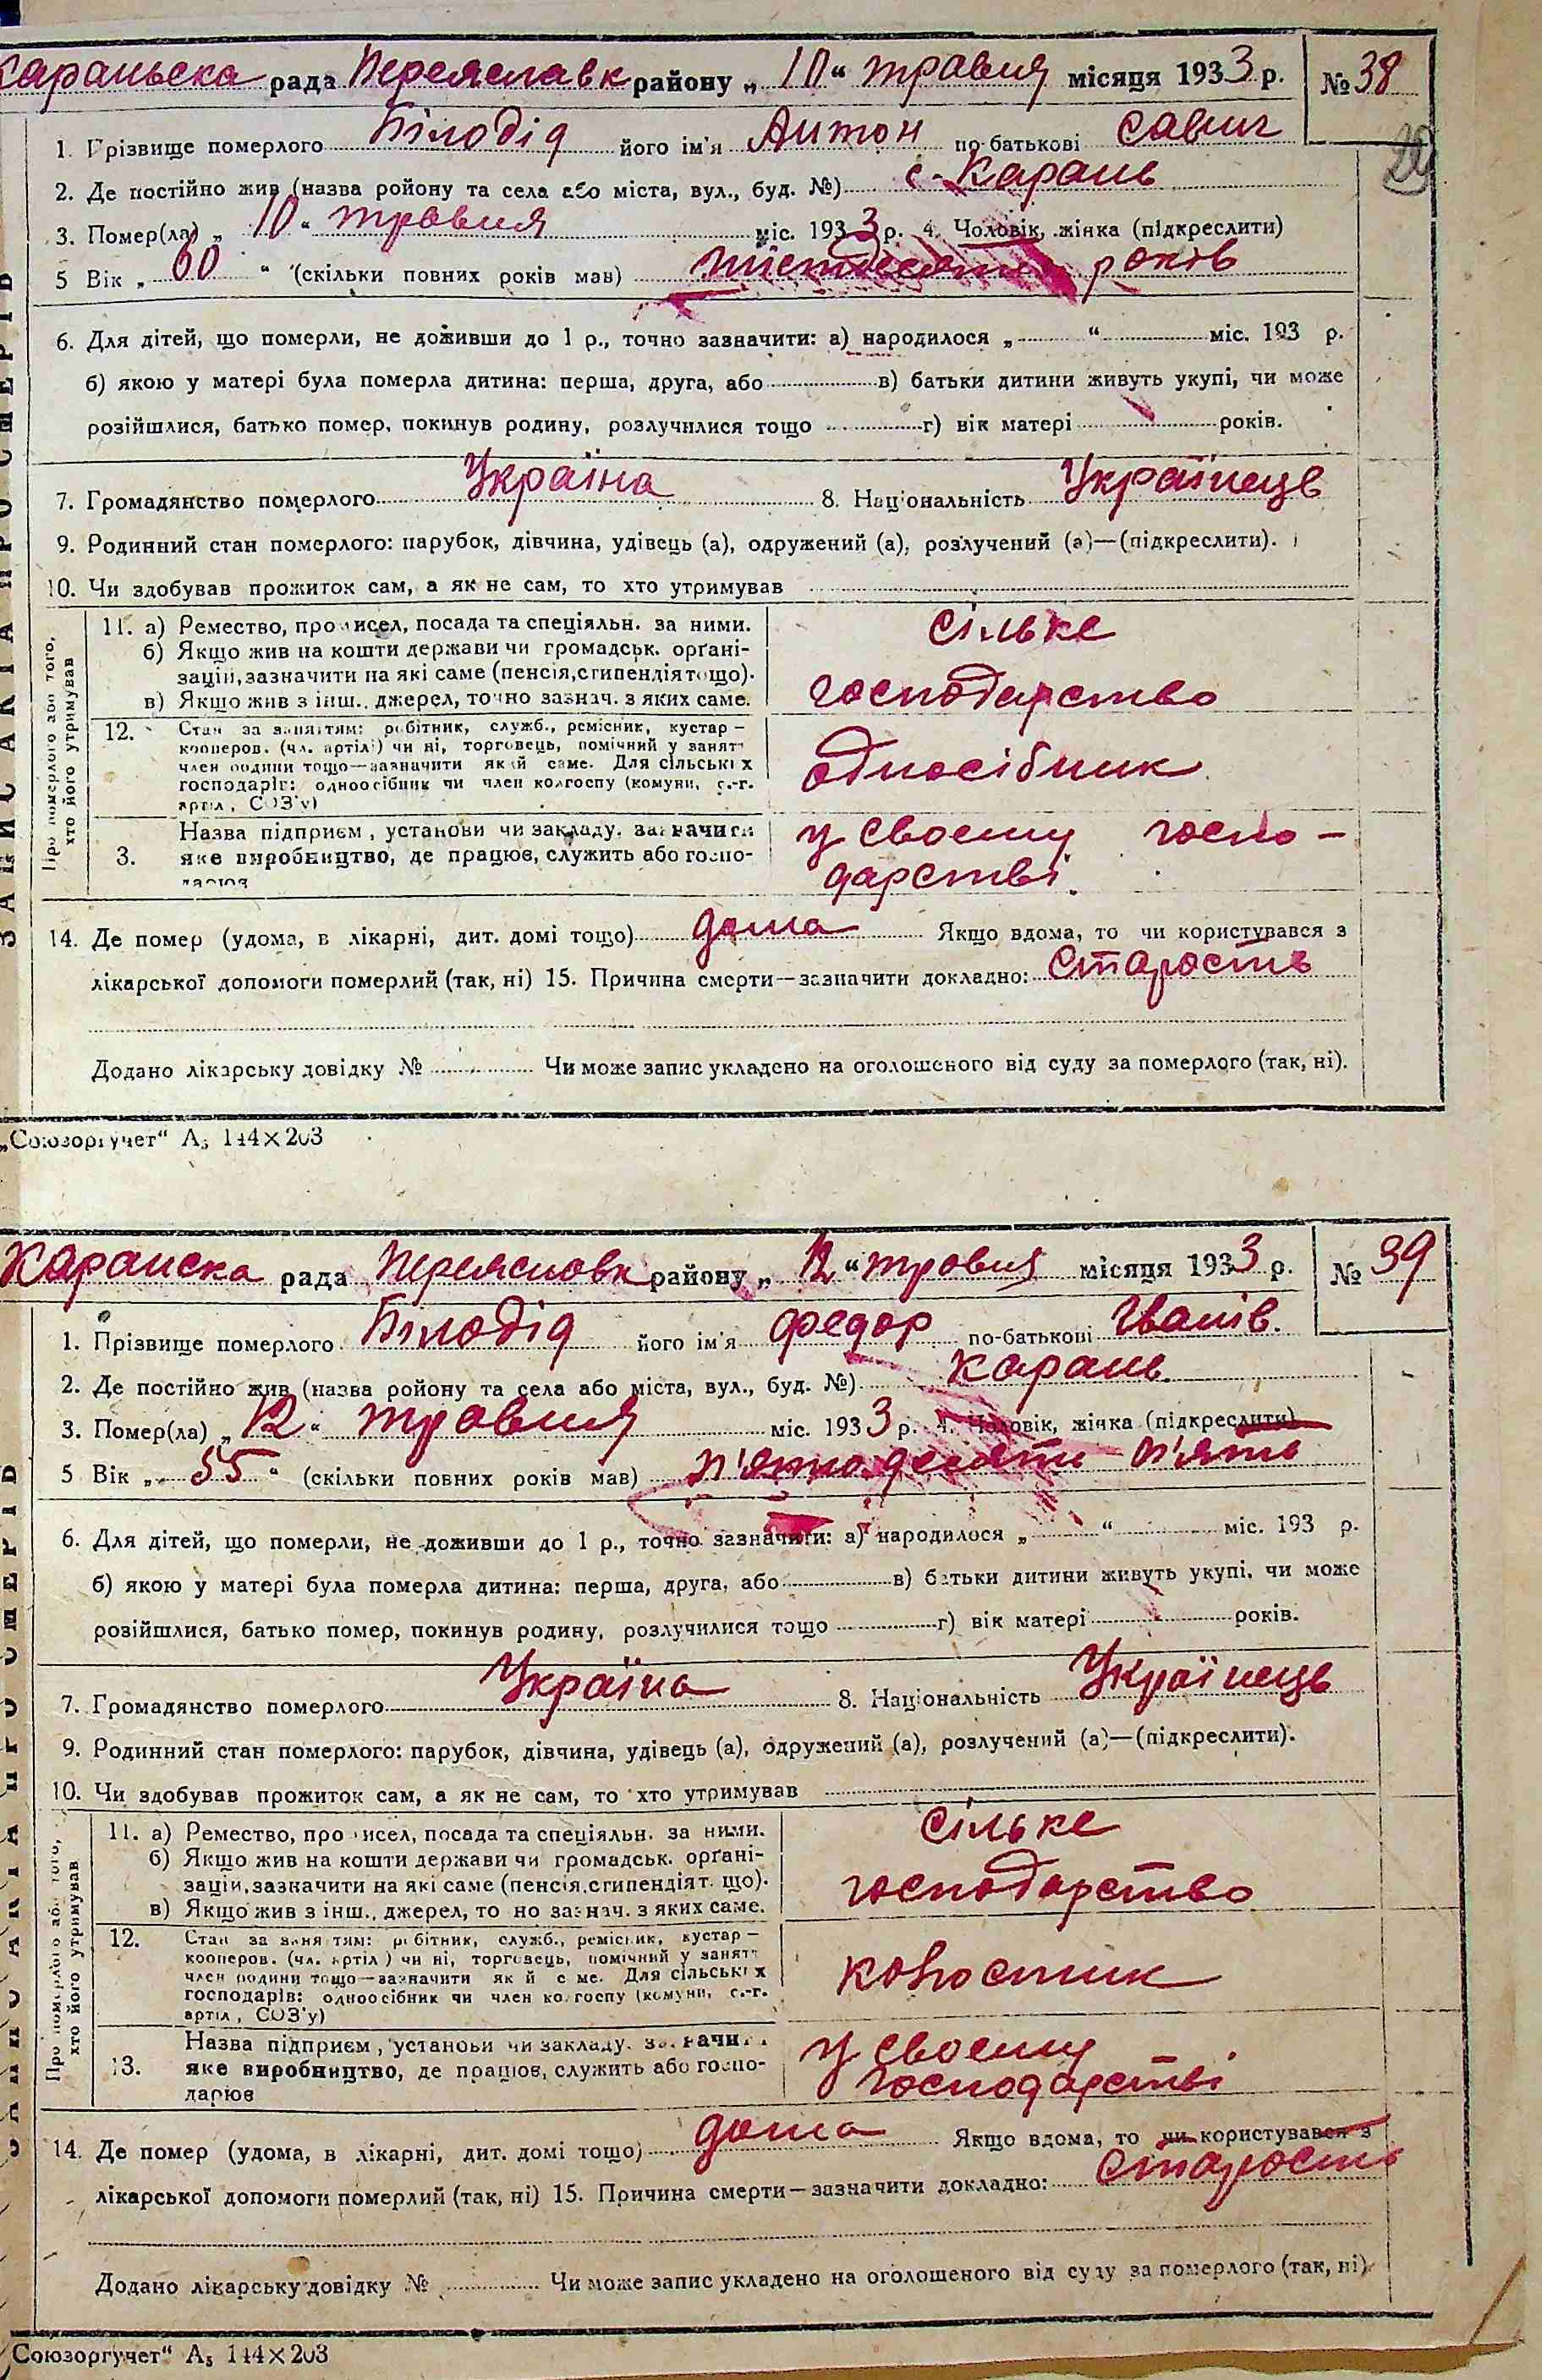 Караньска рада Переяславк району „ 10 “ травня місяця 1933 р. № 38
1. Прізвище померлого Білодід його ім'я Антон по-батькові Савич
2. Де постійно жив (назва ройону та села або міста, вул., буд. №) с. Карань
3. Помер(ла) „ 10 “ травня міс. 1933 р. 4. Чоловік, жінка (підкреслити)
5 Вік „ 60 “ (скільки повних років мав) шістдесят років
6. Для дітей, що померли, не доживши до 1 р., точно зазначити: а) народилося „ “ міс. 193 р.
б) якою у матері була померла дитина: перша, друга, або в) батьки дитини живуть укупі, чи може
розійшлися, батько помер, покинув родину, розлучилися тощо г) вік матері років.
7. Громадянство померлого Україна 8. Національність Українець
9. Родинний стан померлого: парубок, дівчина, удівець (а), одружений (а), розлучений (а)—(підкреслити).
10. Чи здобував прожиток сам, а як не сам, то хто утримував
Про померлого або того,
хто його утримував
11. а) Ремество, промисел, посада та спеціяльн. за ними. сільке
б) Якщо жив на кошти держави чи громадськ. орґані-
зацій, зазначити на які саме (пенсія, стипендія тощо). господарство
в) Якщо жив з інш. джерел, точно зазнач. з яких саме.
12. Стан за заняттям: робітник, служб., ремісник, кустар —
кооперов. (чл. артілі) чи ні, торговець, помічний у занятт
член родини тощо—зазначити який саме. Для сільськіх односібник
господарів: одноосібник чи член колгоспу (комуни, с.-г.
артіл, СОЗ'у)
Назва підприєм, установи чи закладу. зазначити у своему госпо-
3. яке виробництво, де працює, служить або госпо- дарстві.
дарює
14. Де помер (удома, в лікарні, дит. домі тощо) дома Якщо вдома, то чи користувався з
лікарської допомоги померлий (так, ні) 15. Причина смерти—зазначити докладно: Старость
Додано лікарську довідку № Чи може запис укладено на оголошеного від суду за померлого (так, ні).
„Союзоргучет“ А5 144×203
Каранска рада Переясловк району „ 12 “ травня місяця 1933 р. № 39
1. Прізвище померлого Білодід його ім'я Федор по-батькові Іванів.
2. Де постійно жив (назва ройону та села або міста, вул., буд. №) Карань
3. Помер(ла) „ 12 “ травня міс. 1933 р. 4. Чоловік, жінка (підкреслити)
5 Вік „ 55 “ (скільки повних років мав) п'ятодесяти п'ять
6. Для дітей, що померли, не доживши до 1 р., точно зазначити: а) народилося „ “ міс. 193 р.
б) якою у матері була померла дитина: перша, друга, або в) батьки дитини живуть укупі, чи може
розійшлися, батько помер, покинув родину, розлучилися тощо г) вік матері років.
7. Громадянство померлого Україна 8. Національність Українець
9. Родинний стан померлого: парубок, дівчина, удівець (а), одружений (а), розлучений (а)—(підкреслити).
10. Чи здобував прожиток сам, а як не сам, то хто утримував
Про померлого або того,
хто його утримував
11. а) Ремество, промисел, посада та спеціяльн. за ними. сільке
б) Якщо жив на кошти держави чи громадськ. орґані-
зацій, зазначити на які саме (пенсія, стипендія т. що). господарство
в) Якщо жив з інш. джерел, то но зазнач. з яких саме.
12. Стан за заняттям: робітник, служб., ремісник, кустар —
кооперов. (чл. артіл) чи ні, торговець, помічний у занятт
член родини тощо—зазначити як й с ме. Для сільськіх
господарів: одноосібник чи член колгоспу (комуни, с.-г.
артіл, СОЗ'у)
Назва підприєм, установи чи закладу. зазначи у своему
13. яке виробництво, де працює, служить або госпо- господарстві
дарює
14. Де помер (удома, в лікарні, дит. домі тощо) дома Якщо вдома, то чи користувався з
лікарської допомоги померлий (так, ні) 15. Причина смерти—зазначити докладно: Старость
Додано лікарську довідку № Чи може запис укладено на оголошеного від суду за померлого (так, ні)
Союзоргучет“ А5 144×203